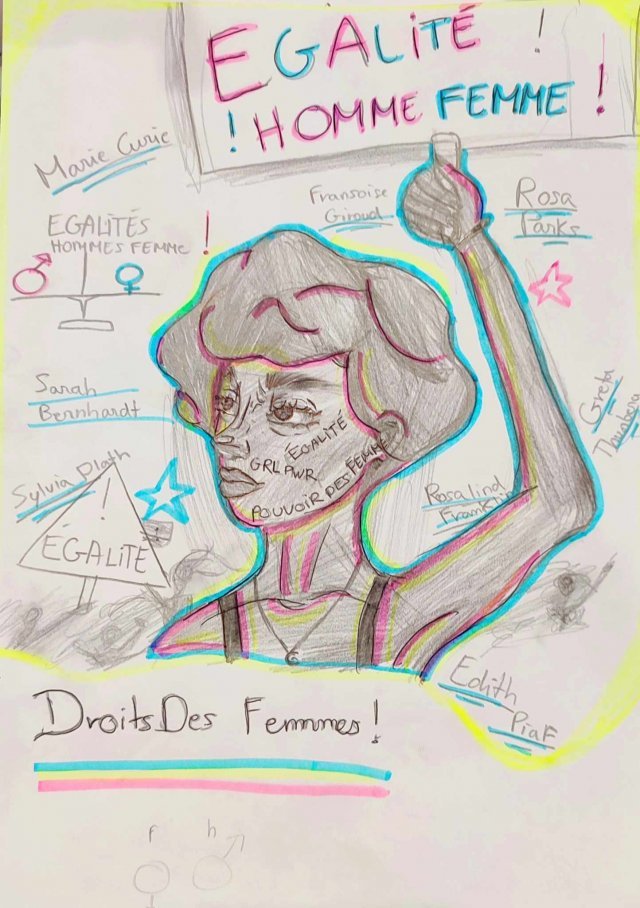 EGALiTÉ !
! HOMME FEMME !
Marie Curie
Fransoise
Giroud
Rosa
Parks
EGALITÉS
HOMMES FEMME !
Sarah
Bernhardt
EGALITÉ
GRL PWR
POUVOIR DES FEMME
Greta
Thunberg
Sylvia Plath
!
ÉGALiTÉ
Rosalind
Franklin
Edith
PiaF
Droits Des Femmes !
f h